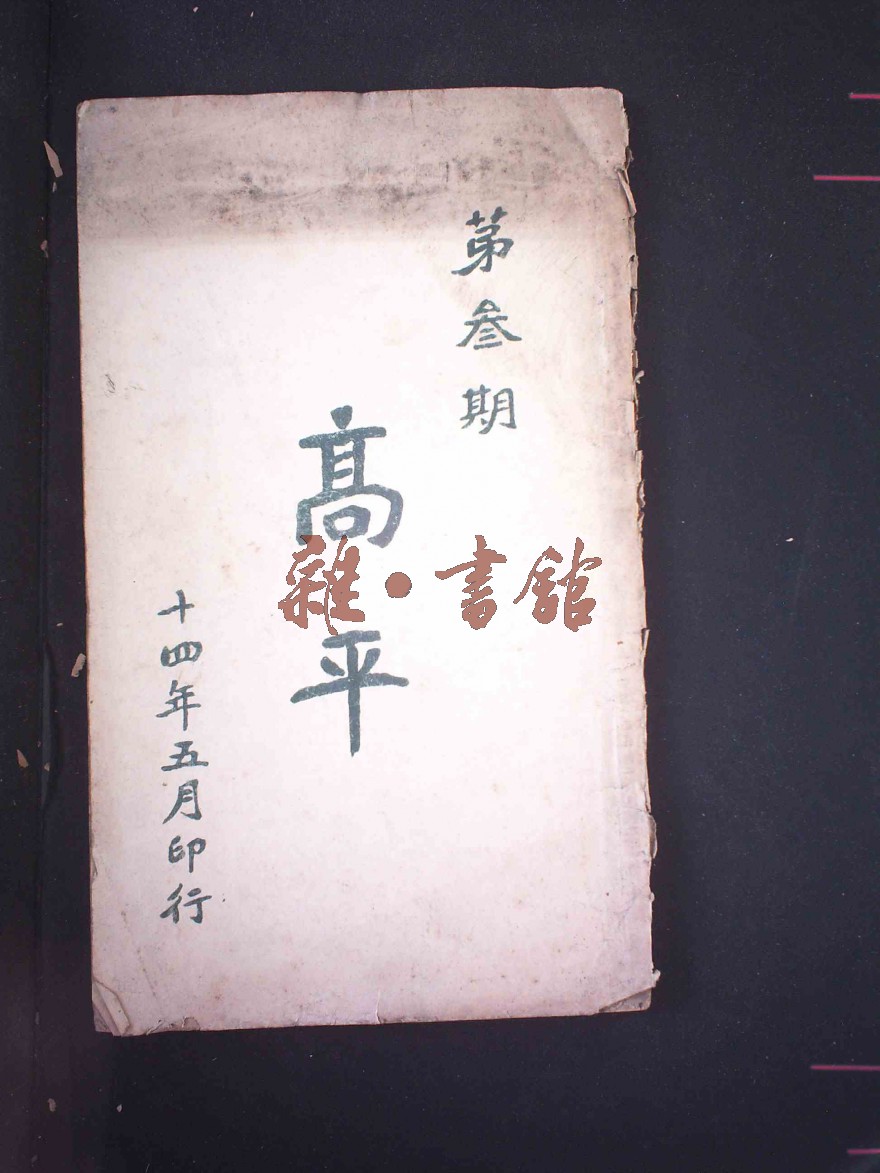 第叁期
髙平
十四年五月印行
雜·書館